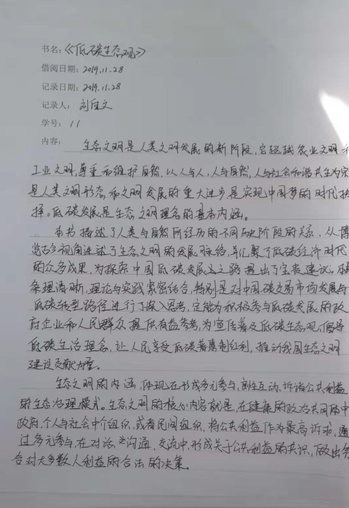 书名:《低碳生态观》
借阅日期: 2019.11.28
记录日期: 2019.11.28
记录人: 刘
学号: 11
内容: 生态文明是人类文明发展的新阶段,它继农业文明
工业文明,尊重和维护自然,以人与人,人与自然,人与社会和谐共生为宗
是人类文明形态和文明发展的重大进步是实现中国梦的时代抉
择,低碳发展是生态文明理念的基本内涵。
本书描述了人类与自然所经历的不同阶段的关系,从
古今视角述了生态文明的发展脉络,汇聚了低碳经济时代
的众多效果,为探索中国低碳发展之路提出了宝贵建议。
条理清晰,理论与实践紧密结合,特别是对中国碳交易市场发展与
低碳转型路径进行了深入思考,定能为积极参与低碳发展的政
府企业和人民群众提供有益参考,为宣传普及低碳生态观,倡导
低碳生活理念,让人民享受低碳发展红利,推动我国生态文明
建设贡献力量。
生态文明的内涵,体现在书或多元参与,良性互动,诉诸公共利益
的生态治理模式。生态文明的核心内容就是,在健康的政治共同体中
政府,个人与社会中介组织,或者民间组织,将公共利益作为最高诉求,通
过多元参与,在对话,沟通,交流中,形成关于公共利益的共识,做出符
合对大多数人利益的合法的决策。